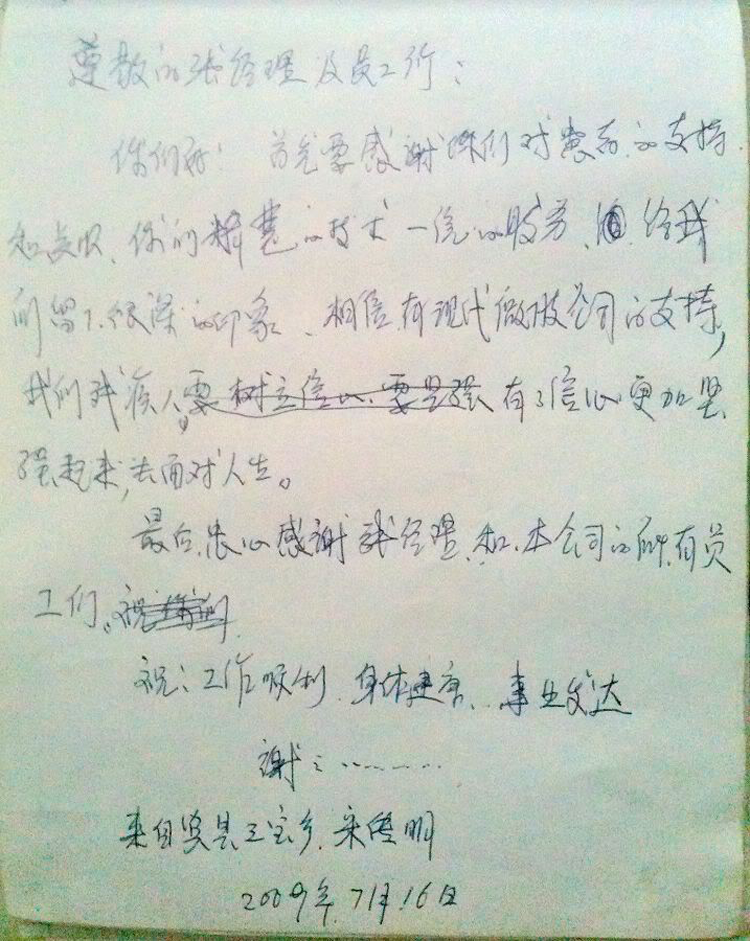 尊敬的张经理及员工们：
你们好！首先要感谢你们对患者的支持
和，你们精慧的技术一流的服务、给我
们留下很深的印象、相信有现代假肢公司的支持，
我们残疾人。要树立信心、要坚强有了信心更加坚
强起来，去面对人生。
最后衷心感谢张经理、和、本公司的所有员
工们。祝你们
祝：工作顺利、身体健康、事业发达
谢：………
来自县三宝乡、明
2009年7月16日